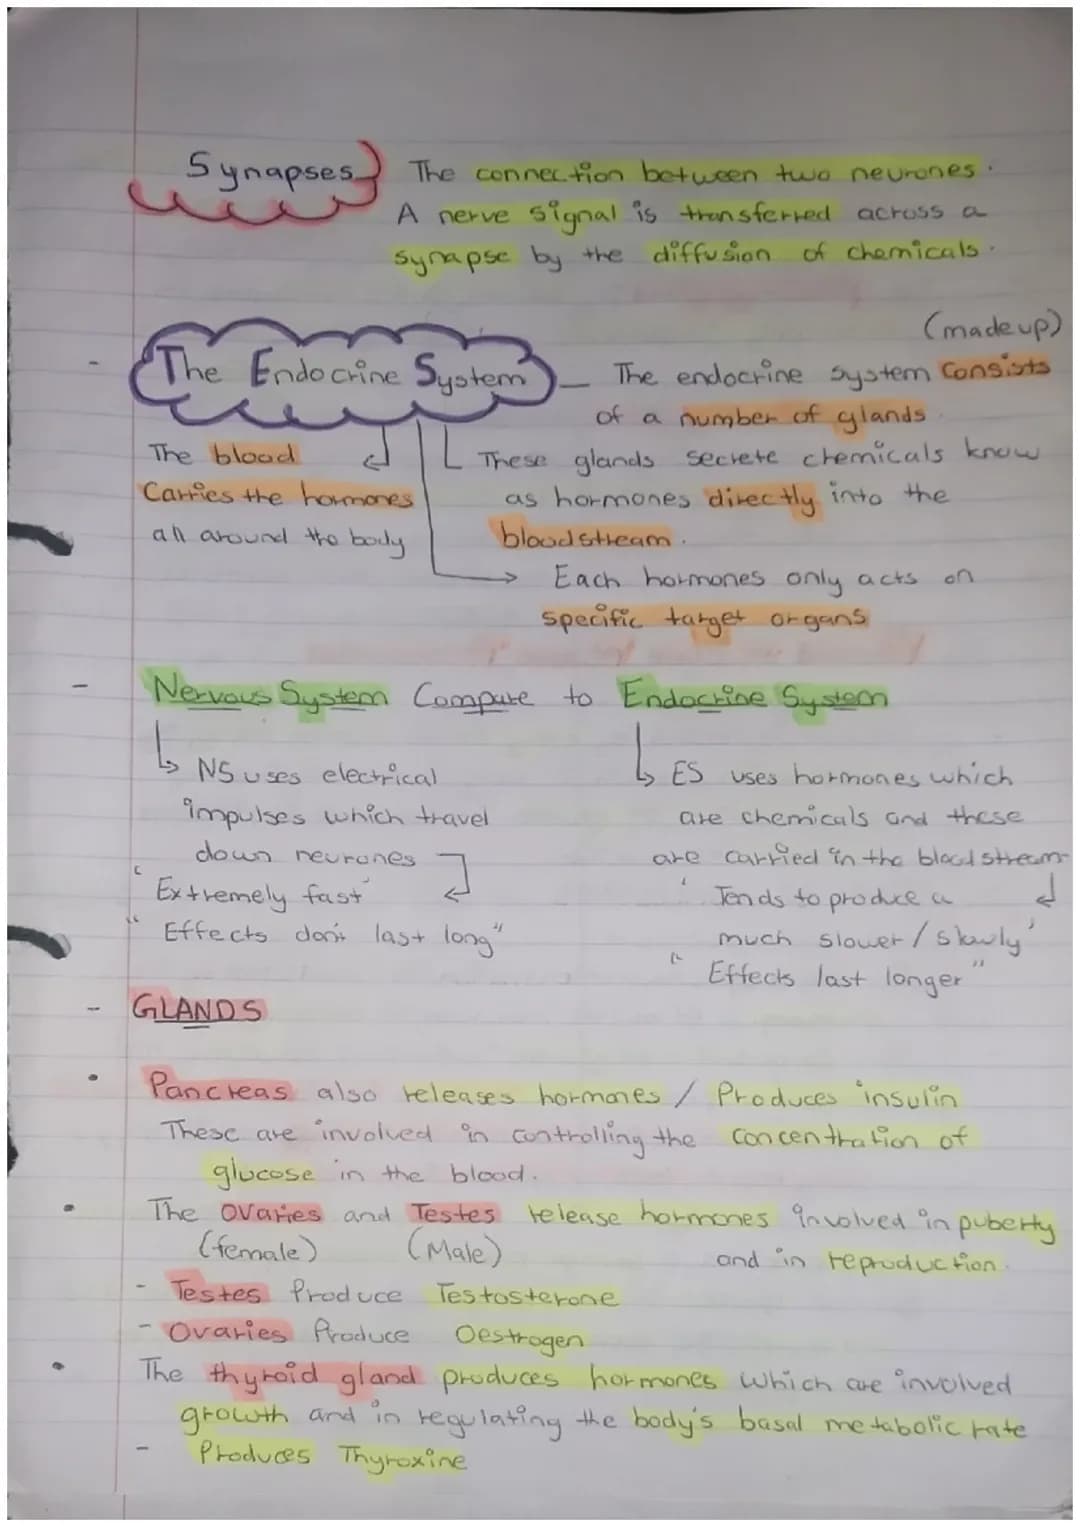 Synapses
The connection between two neurones.
A nerve signal is transferred across a
synapse by the diffusion of chemicals.
(made up)
The Endocrine System – The endocrine system consists
of a number of glands
The blood
Carries the hormones
all around the body
These glands secrete chemicals know
as hormones directly into the
bloodstream.
Each hormones only acts on
specific target organs
- Nervous System Compare to Endocrine System
NS uses electrical
impulses which travel
down neurones
'Extremely fast'
"Effects don't last long"
ES uses hormones which
are chemicals and these
are carried in the bloodstream
'Tends to produce a
much slower/slowly'
"Effects last longer"
- GLANDS
• Pancreas also releases hormones / Produces insulin
These are involved in controlling the concentration of
glucose in the blood.
• The Ovaries and Testes release hormones involved in puberty
(female) (Male) and in reproduction.
- Testes Produce Testosterone
- Ovaries Produce Oestrogen
• The thyroid gland produces hormones which are involved
growth and in regulating the body's basal metabolic rate
- Produces Thyroxine